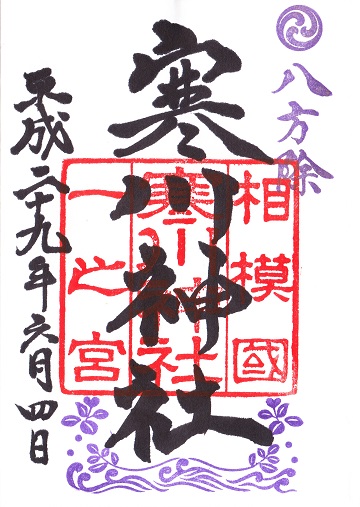 八方除
相模國
寒川神社
一之宮
寒川神社
平成二十九年六月四日